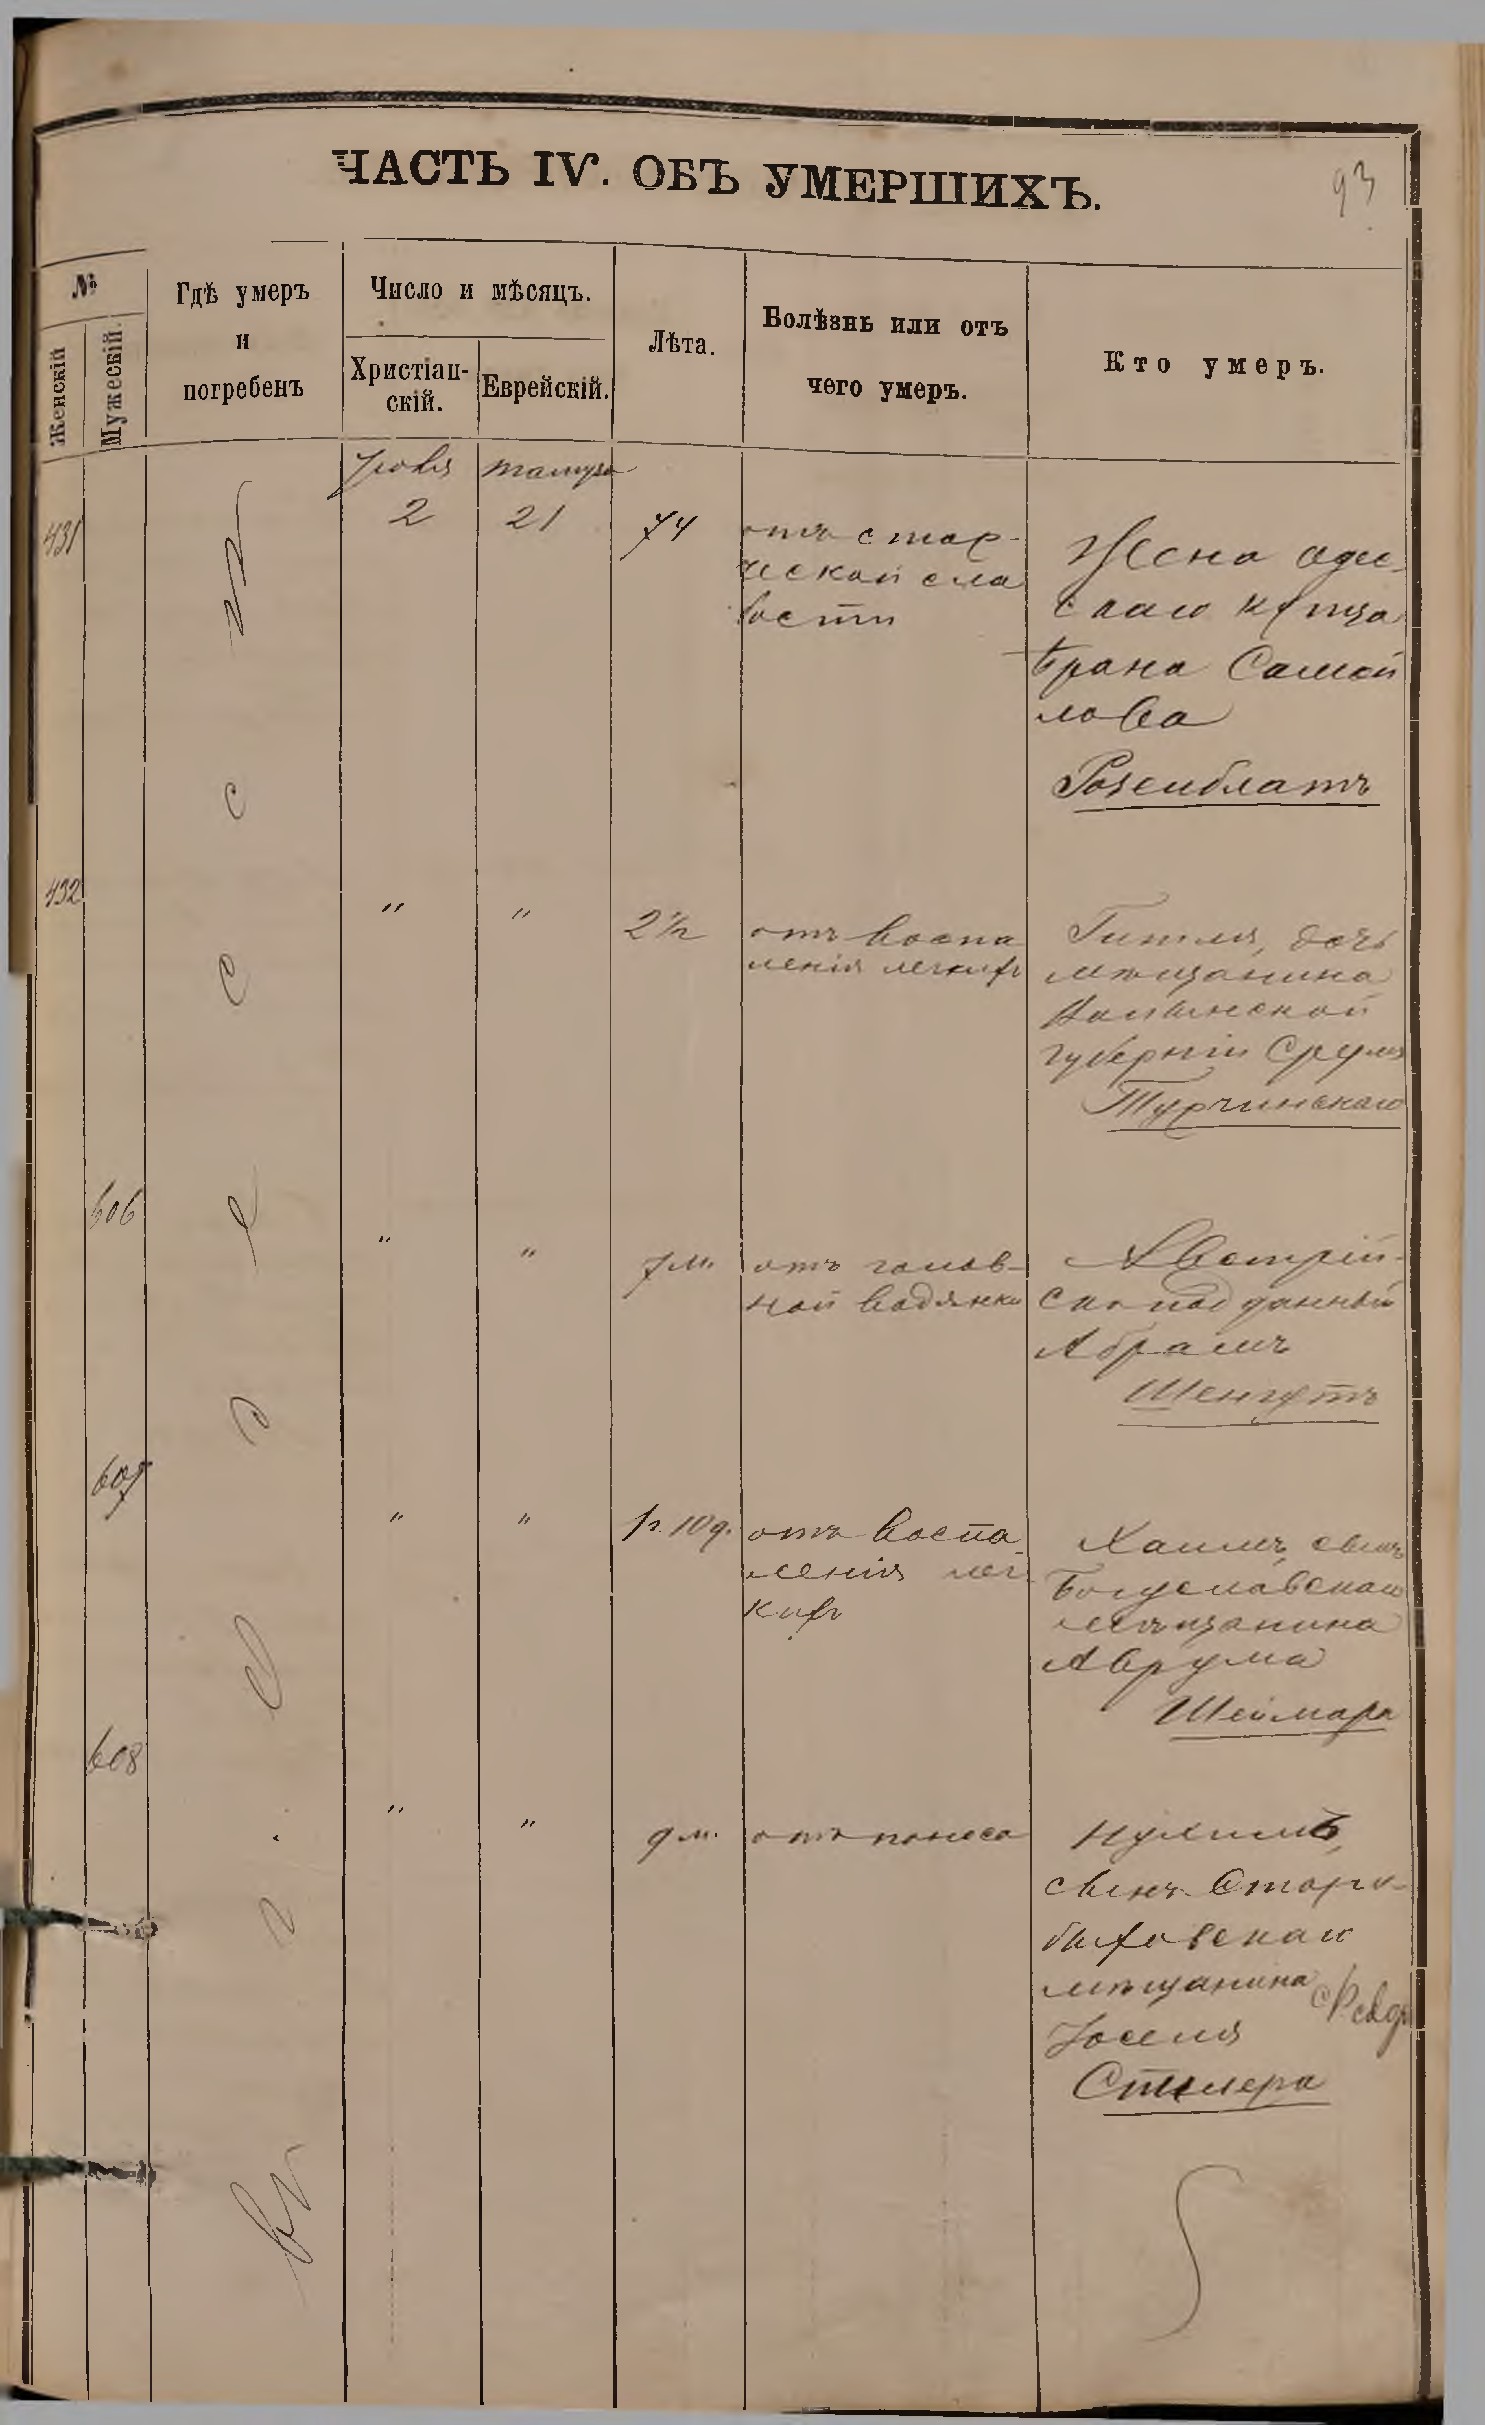 ЧАСТЬ IV. ОБЪ УМЕРШИХЪ.
93
№
Женскій
Мужескій.
Гдѣ умеръ
и
погребенъ
Число и мѣсяцъ.
Христіан-
скій.
Еврейскій.
Лѣта.
Болѣзнь или отъ
чего умеръ.
Кто умеръ.
въ г. Одессѣ
Іюля
тамуза
431
2
21
74
отъ стар-
ческой сла
бости
Жена одес-
скаго купца
Брана Самой
лова
Розенблатъ
432
"
"
2½
отъ воспа
ленія легкихъ
Гитля, дочь
мѣщанина
Волынской
губерніи Сруля
Турчинскаго
606
"
"
7 м.
отъ голов-
ной водянки
Австрій-
ско подданный
Абрамъ
Шенгутъ
607
"
"
1 г. 10 д.
отъ воспа
ленія лег-
кихъ
Хаимъ, сынъ
Богуславскаго
мѣщанина
Аврума
Шеймара
608
"
"
9 м.
отъ поноса
Нухимъ,
сынъ Старо-
быховскаго
мѣщанина
Іоселя
Стилера